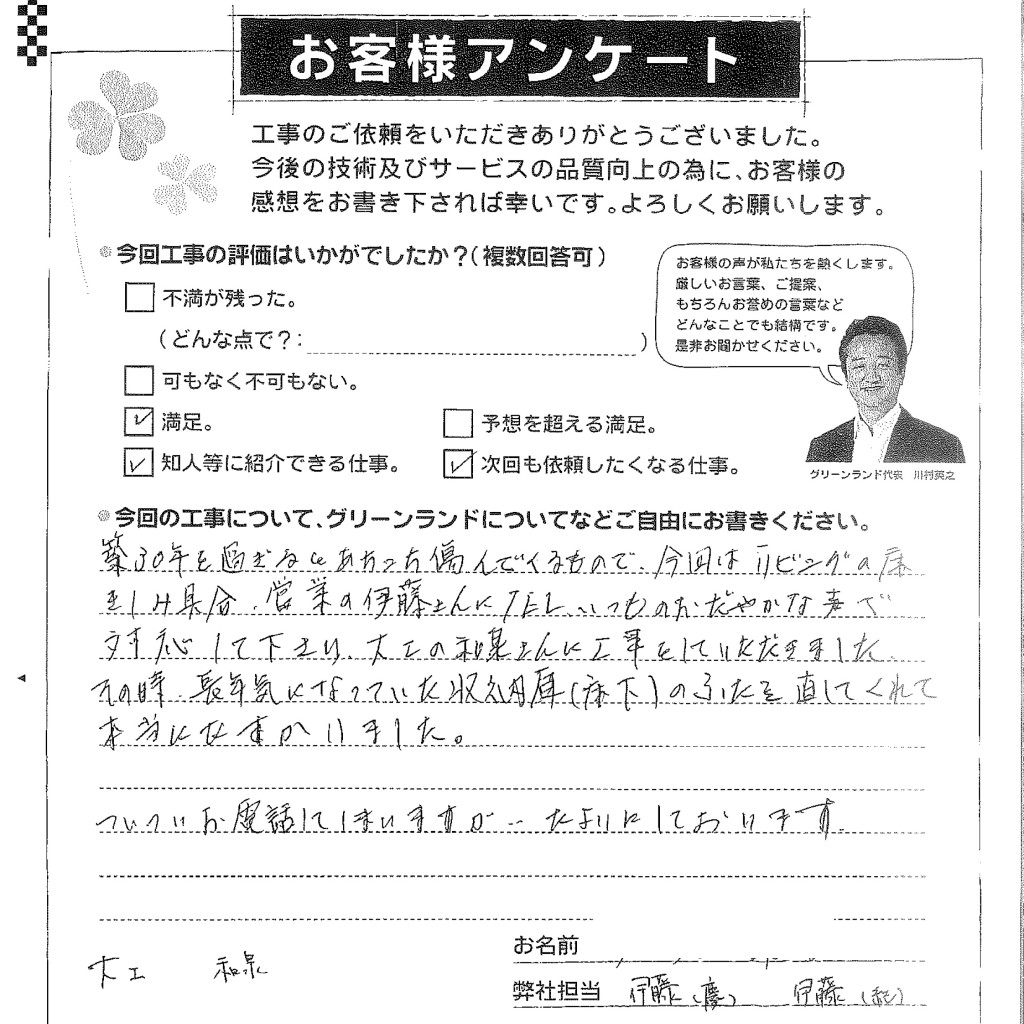 お客様アンケート
工事のご依頼をいただきありがとうございました。
今後の技術及びサービスの品質向上の為に、お客様の
感想をお書き下されば幸いです。よろしくお願いします。
今回工事の評価はいかがでしたか？（複数回答可）
不満が残った。
（どんな点で？： ）
可もなく不可もない。
満足。 予想を超える満足。
知人等に紹介できる仕事。 次回も依頼したくなる仕事。
お客様の声が私たちを熱くします。
厳しいお言葉、ご提案、
もちろんお誉めの言葉など
どんなことでも結構です。
是非お聞かせください。
グリーンランド代表 川村英之
今回の工事について、グリーンランドについてなどご自由にお書きください。
築30年を過ぎるとあちこち傷んでくるもので、今回はリビングの床
きしみ具合、営業の伊藤さんにTEL、いつものおだやかな声で
対応して下さり、大工の和泉さんに工事をしていただきました。
その時、長年気になっていた収納庫(床下)のふたを直してくれて
本当にたすかりました。
ついついお電話してしまいますが… たよりにしております。
大工 和泉
お名前
弊社担当 伊藤(慶) 伊藤